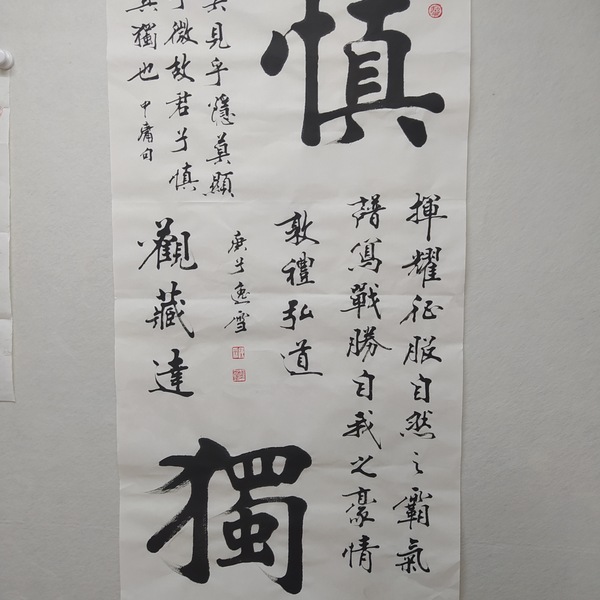 慎
獨
莫見乎隱莫顯
乎微故君子慎
其獨也
中庸句
揮耀征服自然之霸氣
譜寫戰勝自我之豪情
敦禮弘道
庚子逸雪
觀藏達